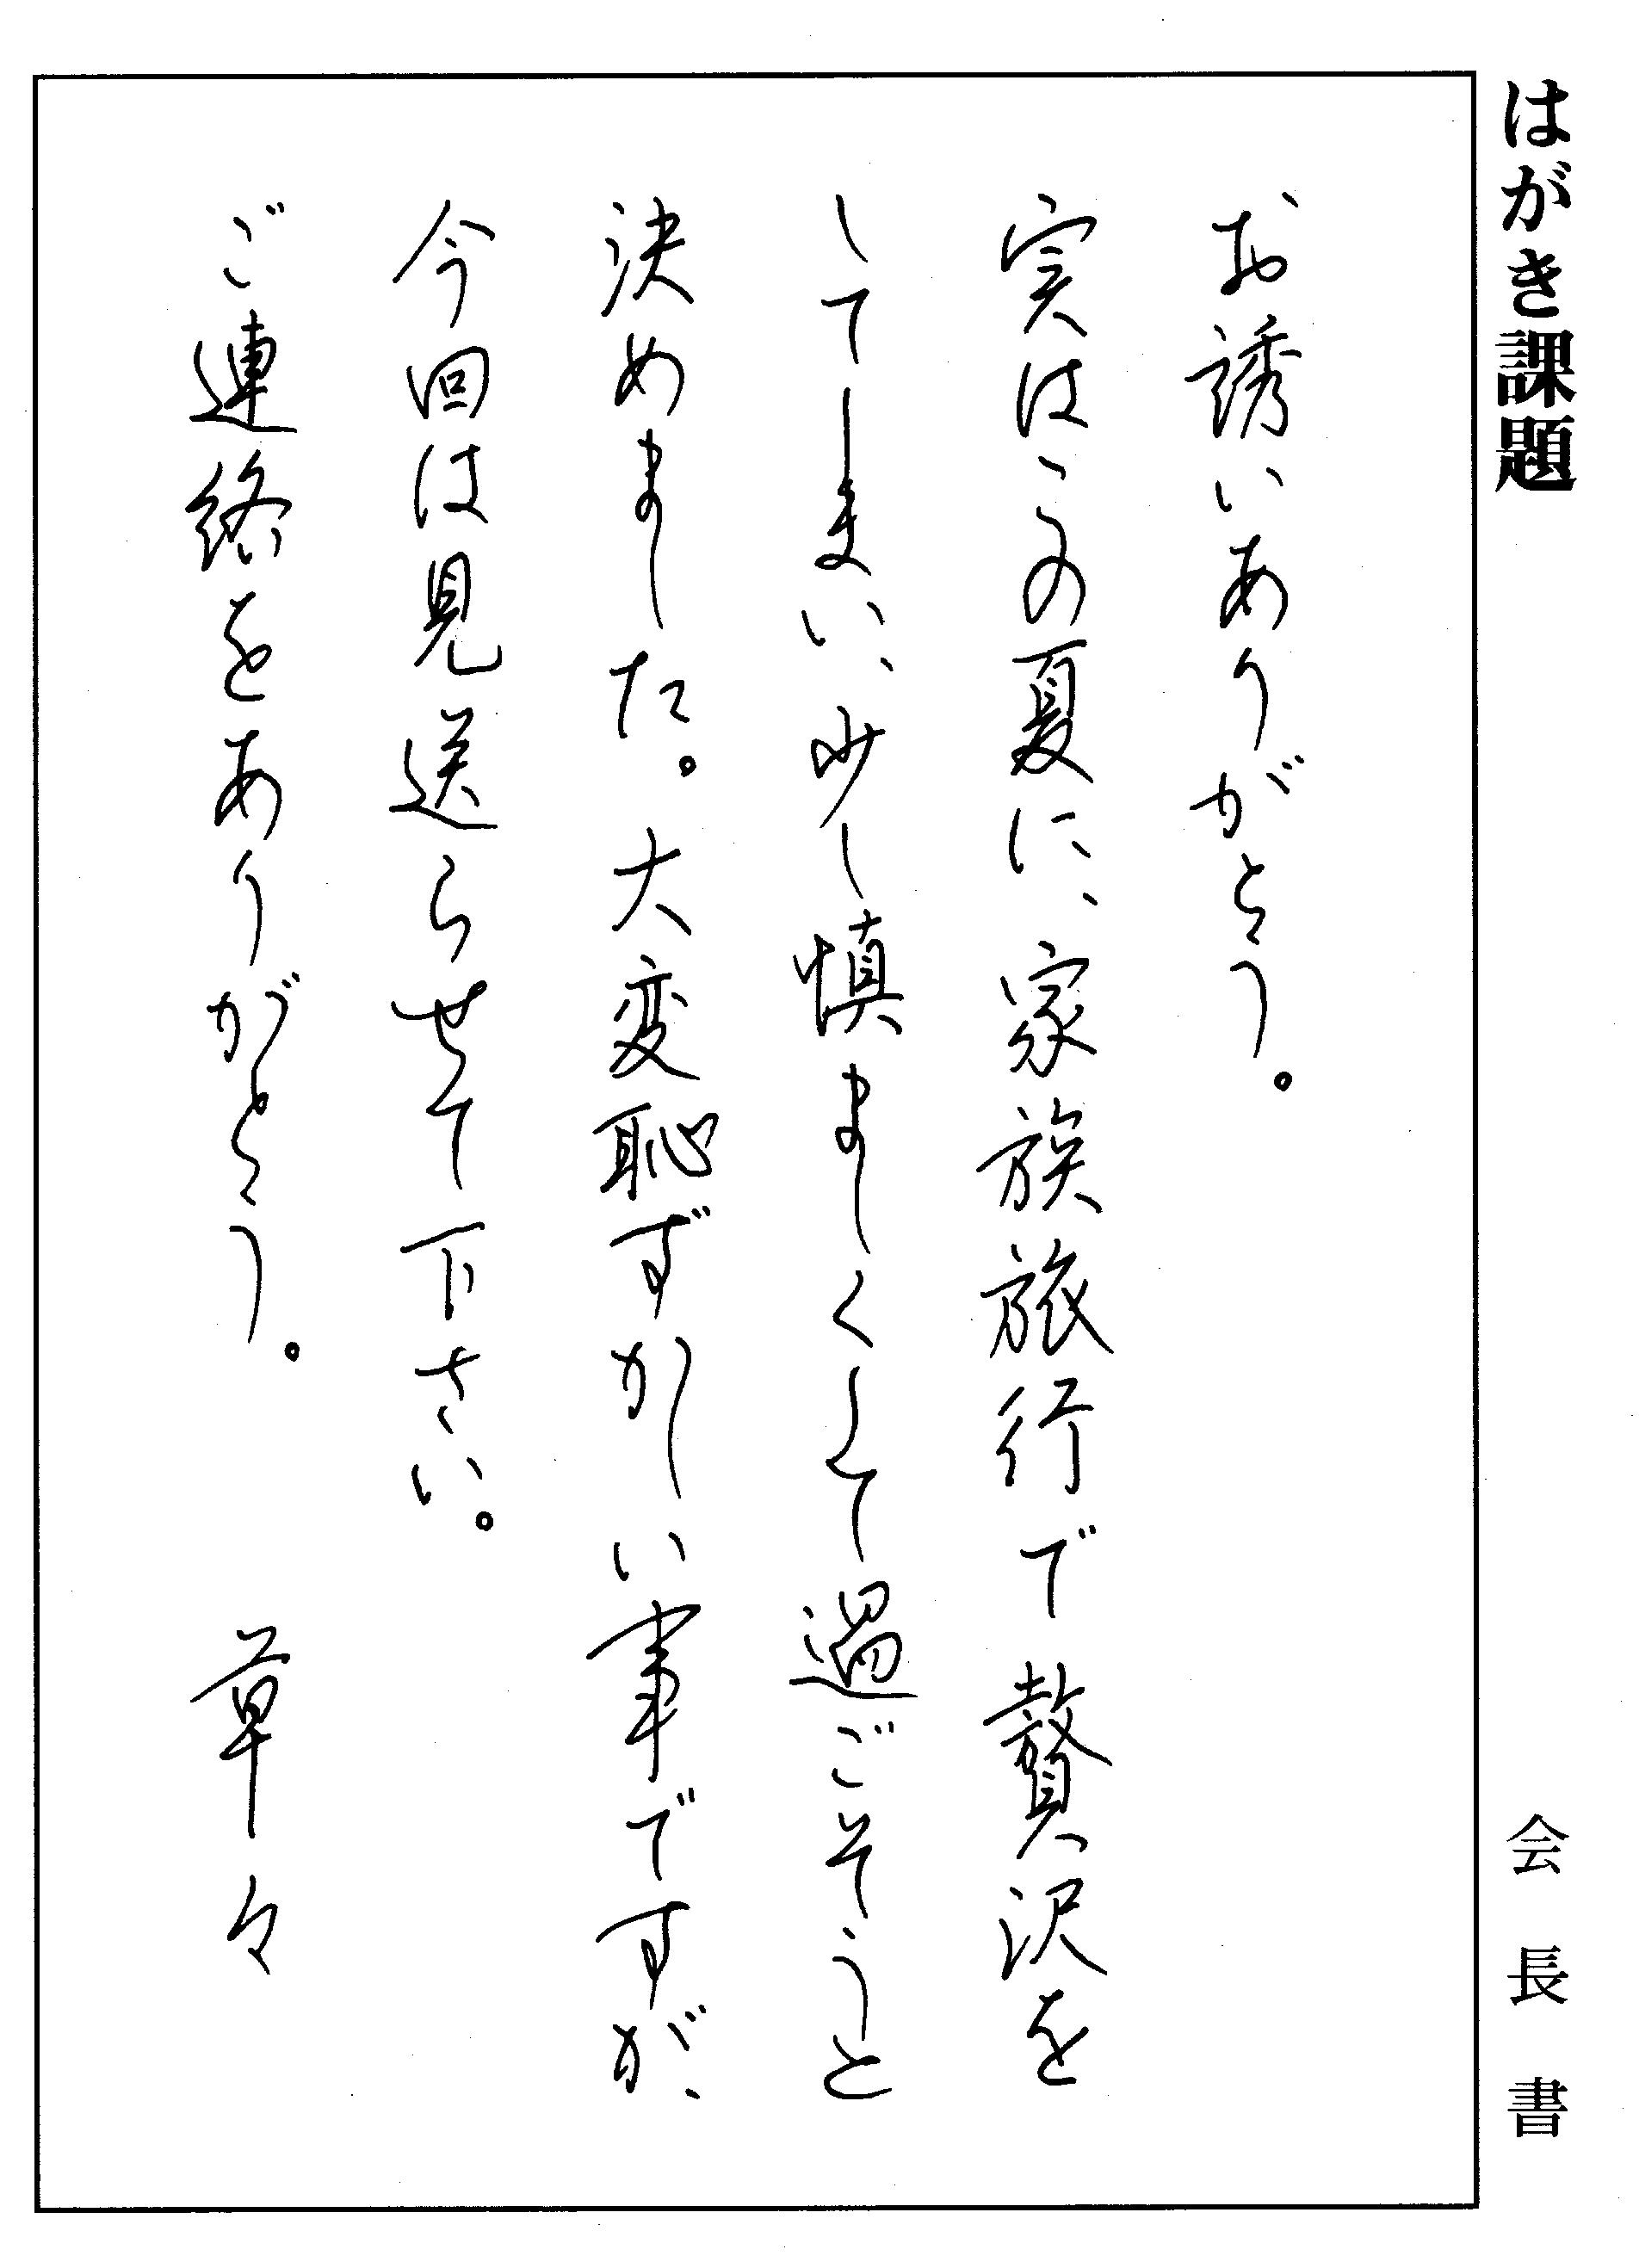 はがき課題
会長書
お誘いありがとう。
実はこの夏に、家族旅行で贅沢を
してしまい、少し慎ましくして過ごそうと
決めました。大変恥ずかしい事ですが、
今回は見送らせて下さい。
ご連絡をありがとう。 草々